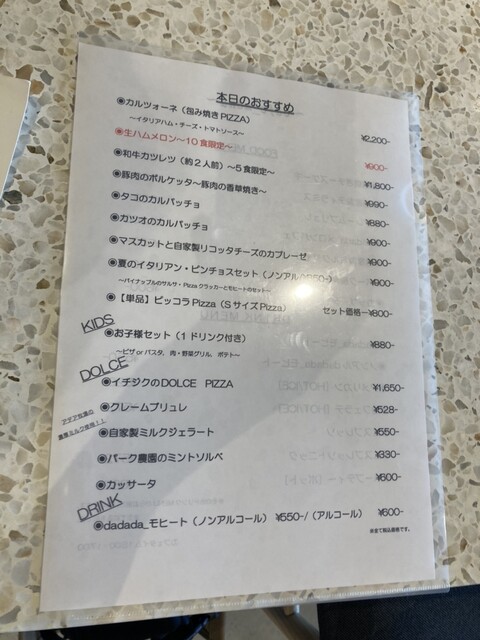 本日のおすすめ
◉カルツォーネ（包み焼きPIZZA） ¥2,200-
～イタリアハム・チーズ・トマトソース～
◉生ハムメロン～10食限定～ ¥900-
◉和牛カツレツ（約2人前）～5食限定～ ¥1,800-
◉豚肉のポルケッタ～豚肉の香草焼き～ ¥990-
◉タコのカルパッチョ ¥880-
◉カツオのカルパッチョ ¥900-
◉マスカットと自家製リコッタチーズのカプレーゼ ¥900-
◉夏のイタリアン・ピンチョスセット（ノンアル ¥900-
～パイナップルのサルサ・Pizzaクラッカーとモヒートのセット～
◉【単品】ピッコラPizza（SサイズPizza） セット価格ー¥800-
KIDS
◉お子様セット（1ドリンク付き） ¥880-
～ピザorパスタ、肉・野菜グリル、ポテト～
DOLCE
◉イチジクのDOLCE PIZZA ¥1,650-
◉クレームブリュレ ¥528-
濃厚ミルク使用！！
◉自家製ミルクジェラート ¥550-
◉パーク農園のミントソルベ ¥330-
◉カッサータ ¥600-
DRINK
◉dadada_モヒート（ノンアルコール） ¥550-/（アルコール） ¥600-
※全て税込価格です。